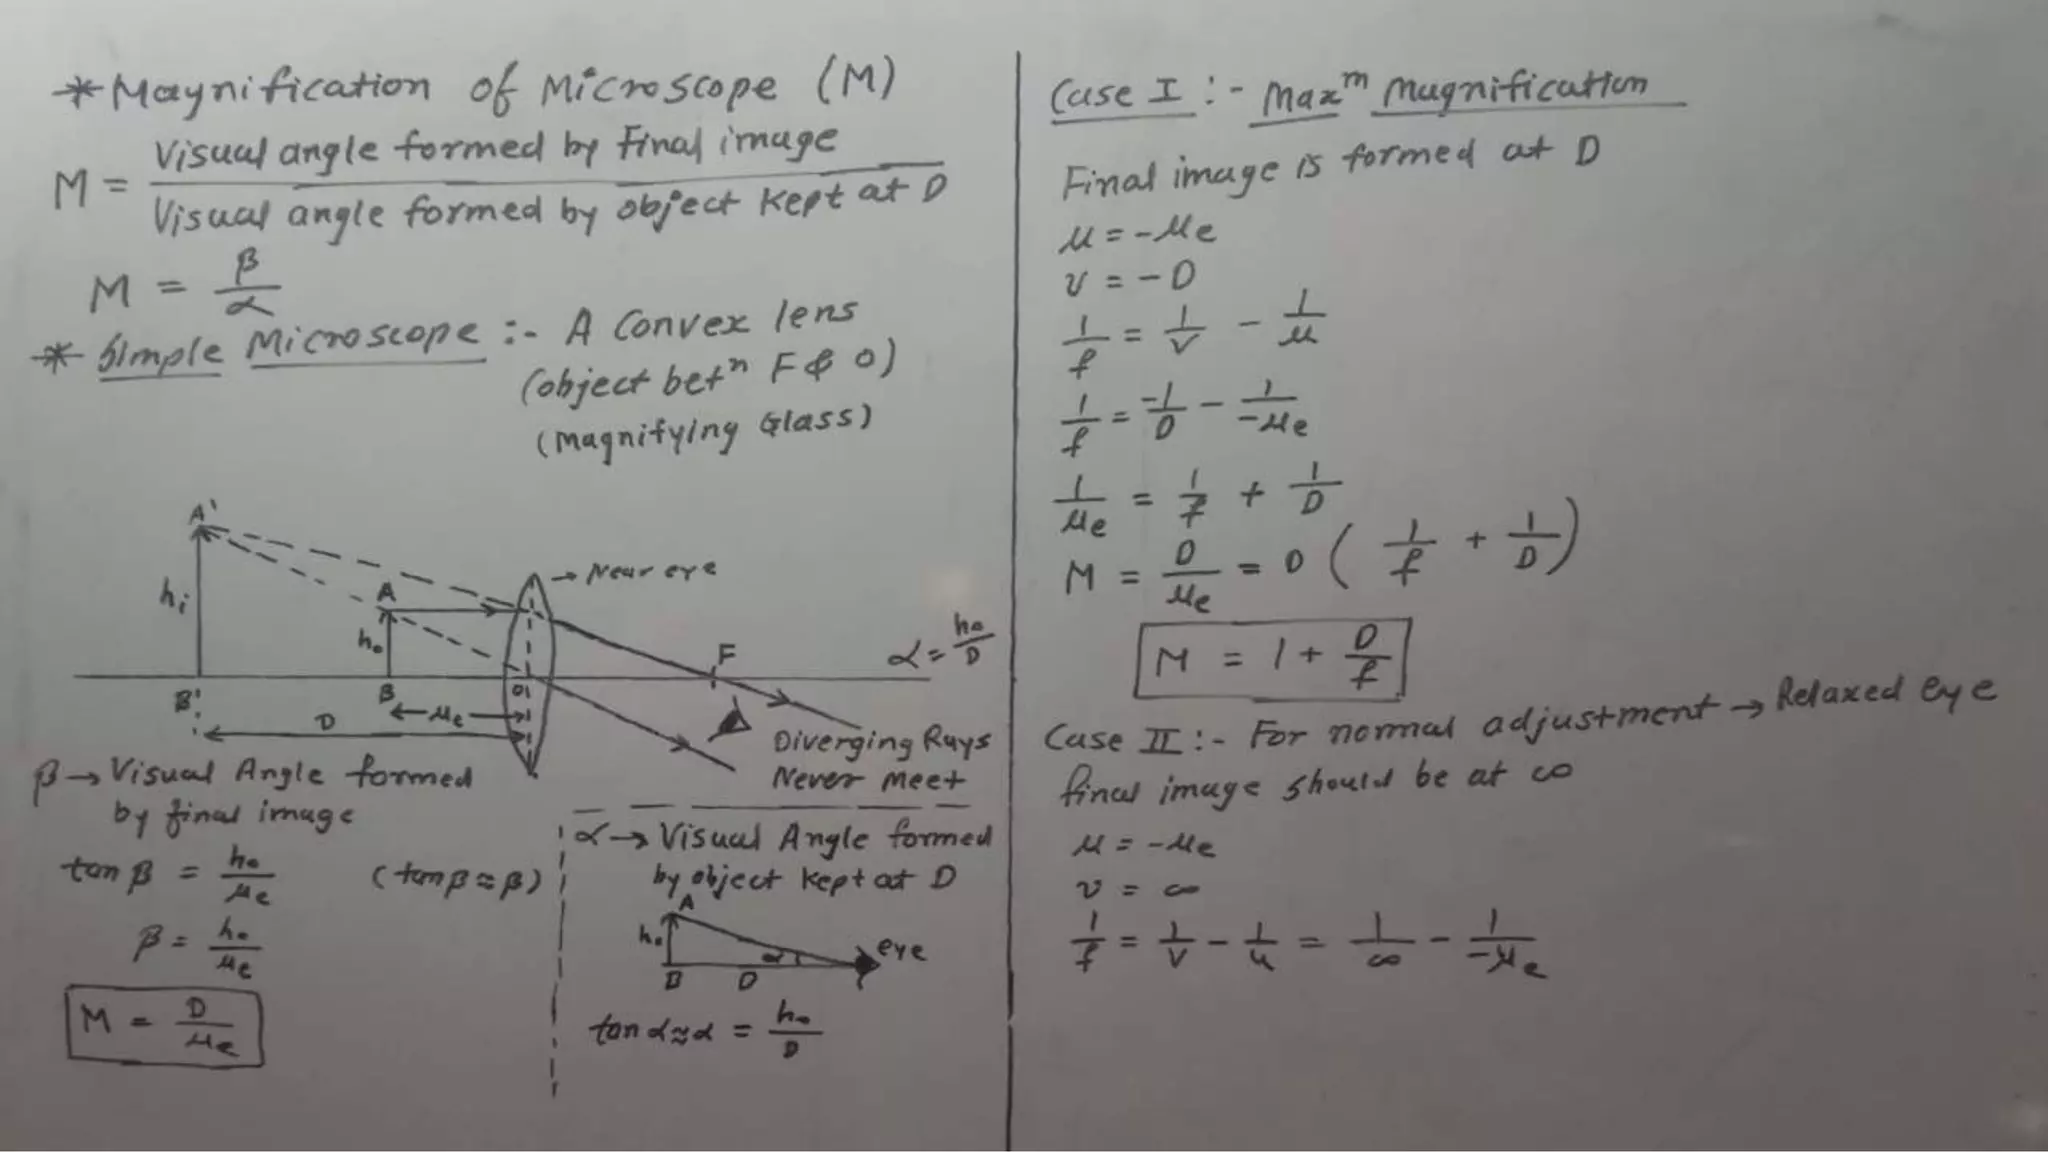 * Magnification of Microscope (M)
M = Visual angle formed by Final image / Visual angle formed by object Kept at D
M = β/α
* Simple Microscope :- A Convex lens
(object betⁿ F & O)
(Magnifying Glass)
A'
hi
A
h₀
→ Near eye
F
α = h₀/D
B'
B
O
← μe →
D
Diverging Rays
Never meet
β → Visual Angle formed
by final image
tan β = h₀/μe (tan β ≈ β)
β = h₀/μe
M = D/μe
α → Visual Angle formed
by object Kept at D
A
h₀
α
eye
B
D
tan α ≈ α = h₀/D
Case I :- Maxᵐ Magnification
Final image is formed at D
μ = -μe
v = -D
1/f = 1/v - 1/μ
1/f = -1/D - 1/-μe
1/μe = 1/f + 1/D
M = D/μe = D ( 1/f + 1/D )
M = 1 + D/f
Case II :- For normal adjustment → Relaxed eye
final image should be at ∞
μ = -μe
v = ∞
1/f = 1/v - 1/u = 1/∞ - 1/-μe